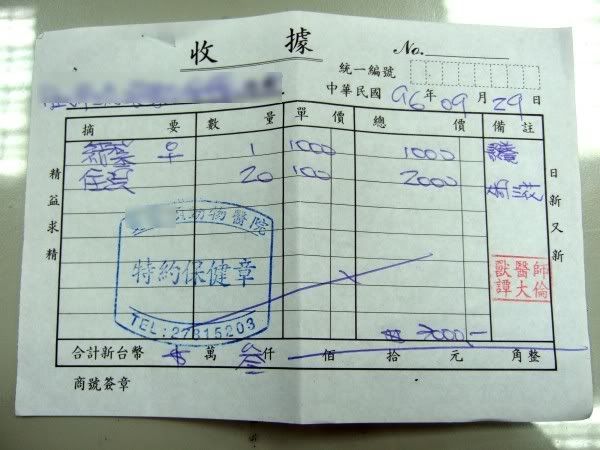 收據
No.
統一編號
中華民國 96年09月29日
摘要 數量 單價 總價 備註
節紮 ♀ 1 1000 1000
住宿 20 100 2000
精益求精
日新又新
動物醫院
特約保健章
TEL:27315203
獸醫師
譚大倫
3000,-
合計新台幣 萬 叁仟 佰 拾 元 角整
商號簽章